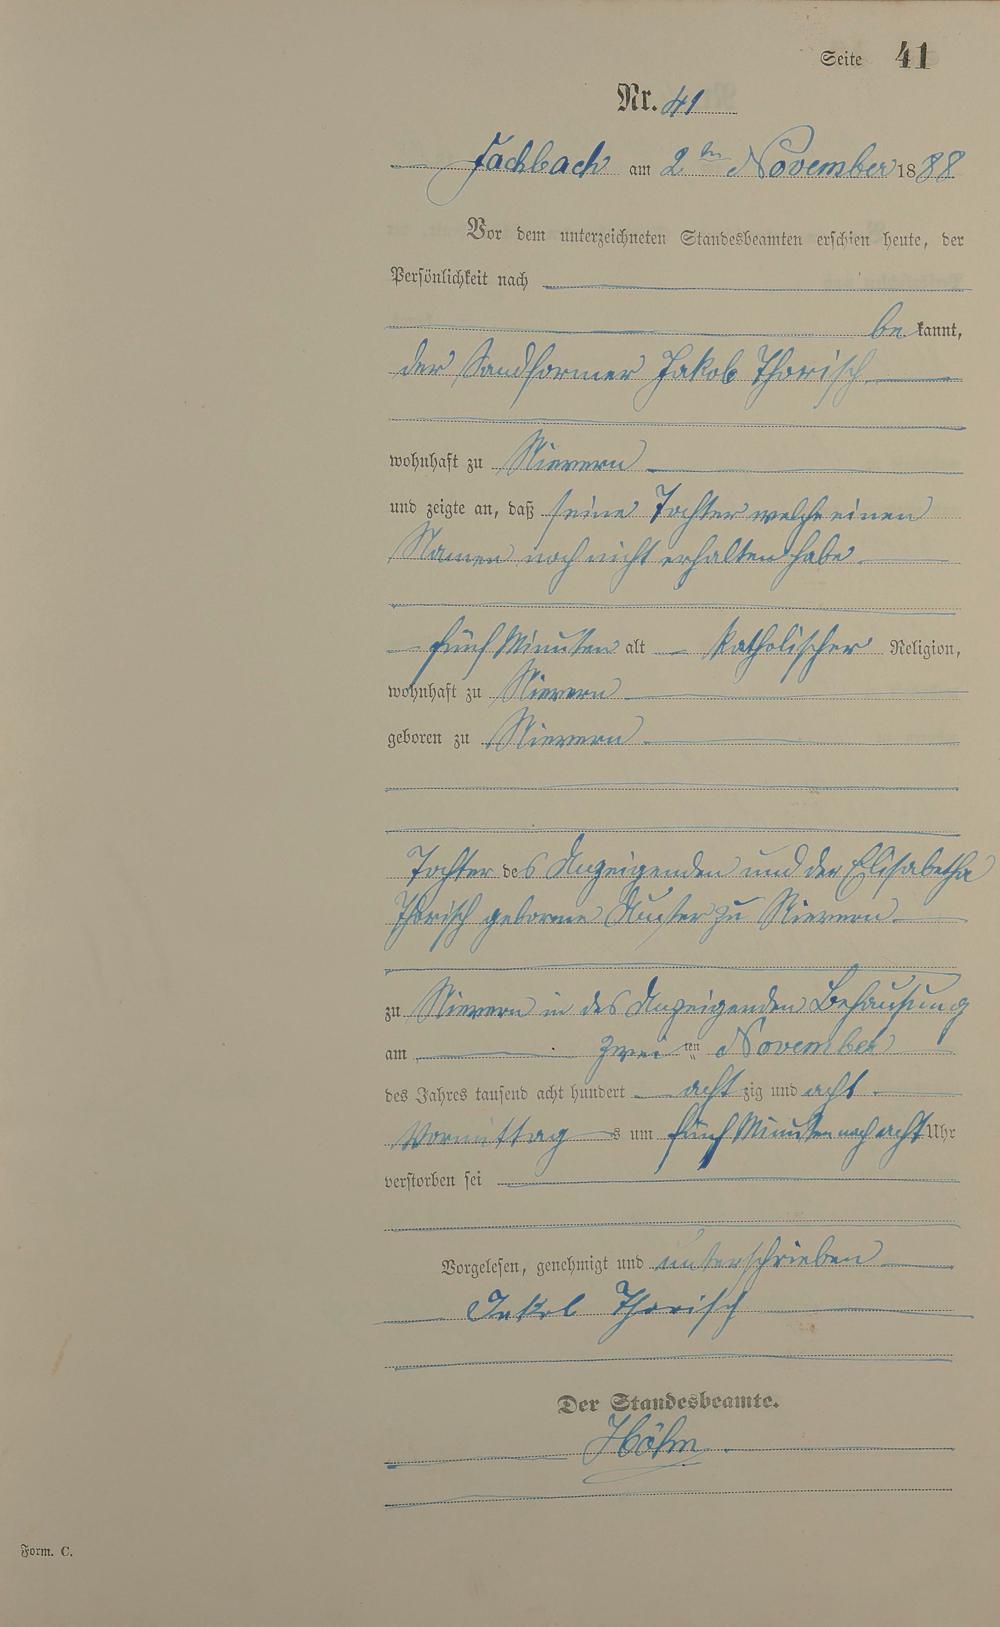 Seite 41
Nr. 41
Fachbach am 2ten November 1888
Vor dem unterzeichneten Standesbeamten erschien heute, der
Persönlichkeit nach
be kannt,
der Sandformer Jakob Thorisch
wohnhaft zu Nievern
und zeigte an, daß seine Tochter welche einen
Namen noch nicht erhalten habe
fünf Minuten alt katholischer Religion,
wohnhaft zu Nievern
geboren zu Nievern
Tochter des Anzeigenden und der Elisabetha
Thorisch geborene zu Nievern
zu Nievern in des Anzeigenden Behausung
am zweiten November
des Jahres tausend acht hundert acht zig und acht
Vormittag s um fünf Minuten nach acht Uhr
verstorben sei
Vorgelesen, genehmigt und unterschrieben
Jakob Thorisch
Der Standesbeamte.
Höhn
Form. C.